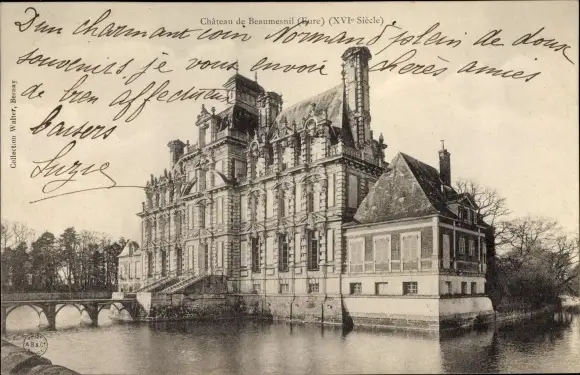 Château de Beaumesnil (Eure) (XVIe Siècle)
D'un charmant coin Normand, plein de doux
souvenirs je vous envoie chères amies
de bien affectueux
baisers
Suzie
Collection Walter, Bernay